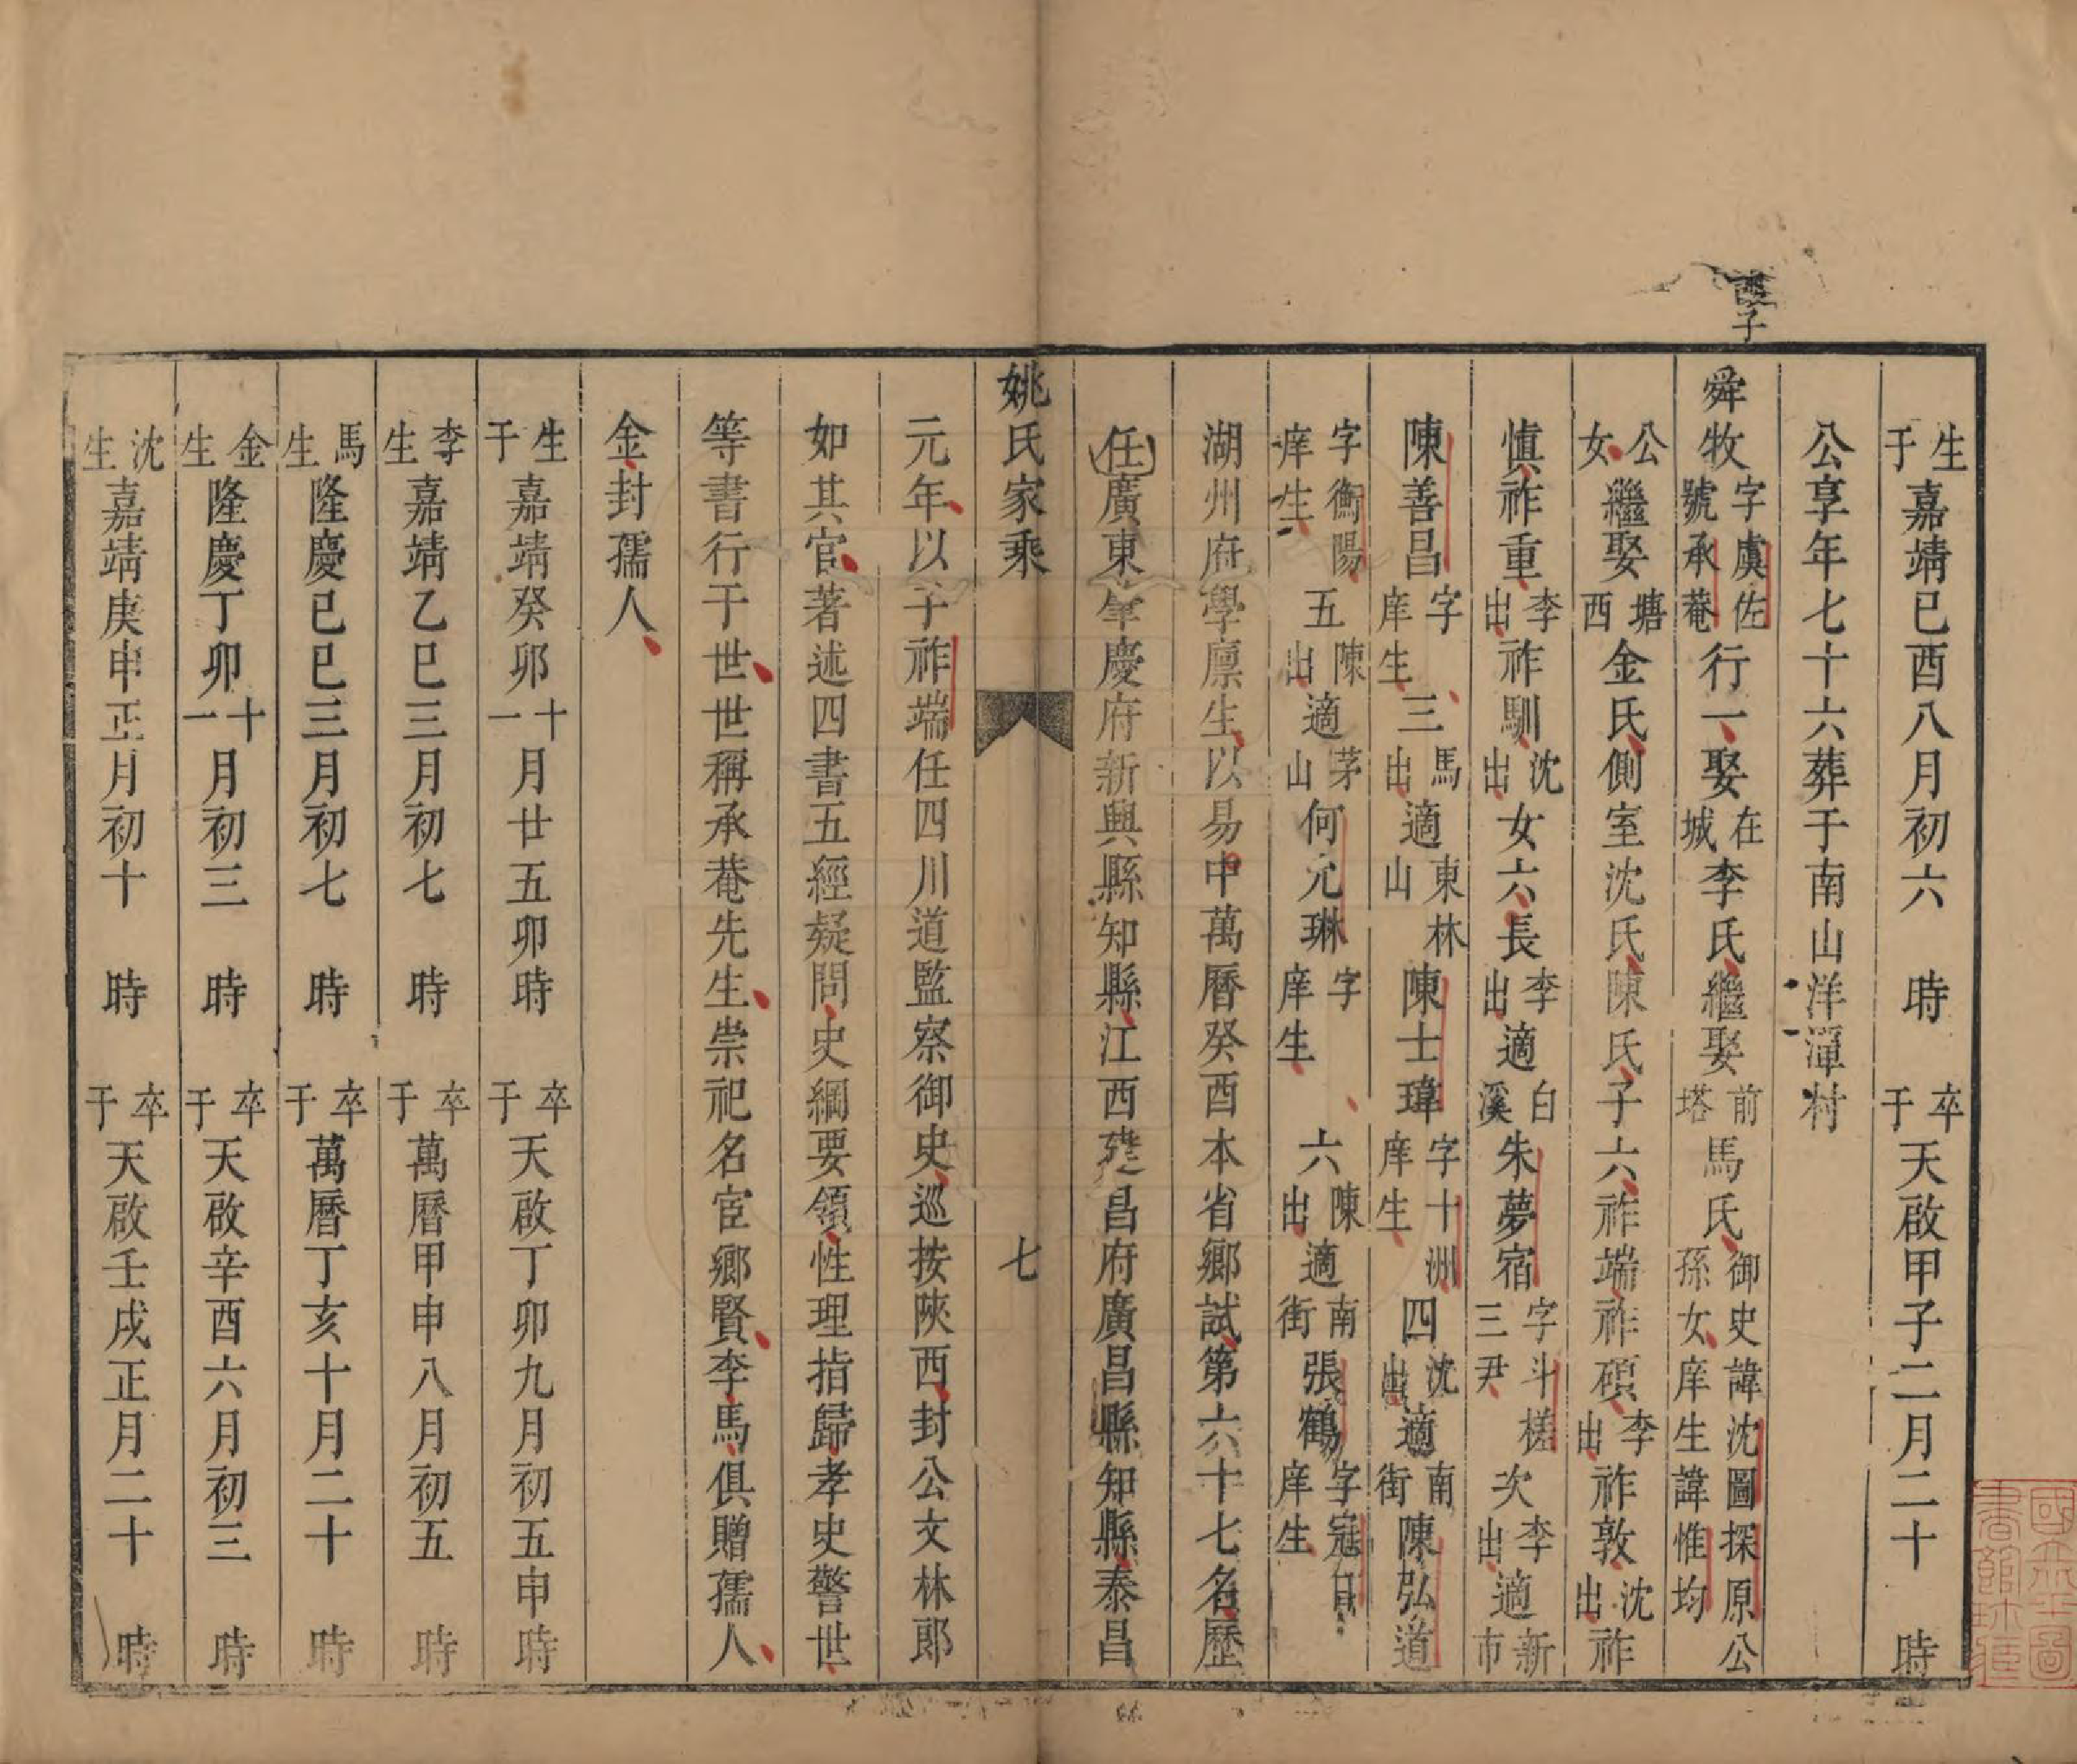 生于嘉靖己酉八月初六 時 卒于天啟甲子二月二十 時
公享年七十六葬于南山洋潭村
子
舜牧字虞佐號承菴行一娶在城李氏繼娶前塔馬氏御史諱沈圖探原公孫女庠生諱惟均
公女繼娶塘西金氏側室沈氏陳氏子六祚端祚碩李出祚敦沈出祚
慎祚重李出祚馴沈出女六長李出適白溪朱夢宿字斗槎三尹次李出適新市
陳善昌字庠生三馬出適東林山陳士瑋字十洲庠生四沈出適南街陳弘道
字衡陽庠生五陳出適茅山何元琳字庠生六陳出適南街張鶴字寇目庠生
湖州府學廩生以易中萬曆癸酉本省鄉試第六十七名歷
任廣東肇慶府新興縣知縣江西建昌府廣昌縣知縣泰昌
姚氏家乘 七
元年以子祚端任四川道監察御史巡按陝西封公文林郎
如其官著述四書五經疑問史綱要領性理指歸孝史警世
等書行于世世稱承菴先生崇祀名宦鄉賢李馬俱贈孺人
金封孺人
生于嘉靖癸卯十一月廿五卯時 卒于天啟丁卯九月初五申時
李生嘉靖乙巳三月初七 時 卒于萬曆甲申八月初五 時
馬生隆慶己巳三月初七 時 卒于萬曆丁亥十月二十 時
金生隆慶丁卯十一月初三 時 卒于天啟辛酉六月初三 時
沈生嘉靖庚申正月初十 時 卒于天啟壬戌正月二十 時